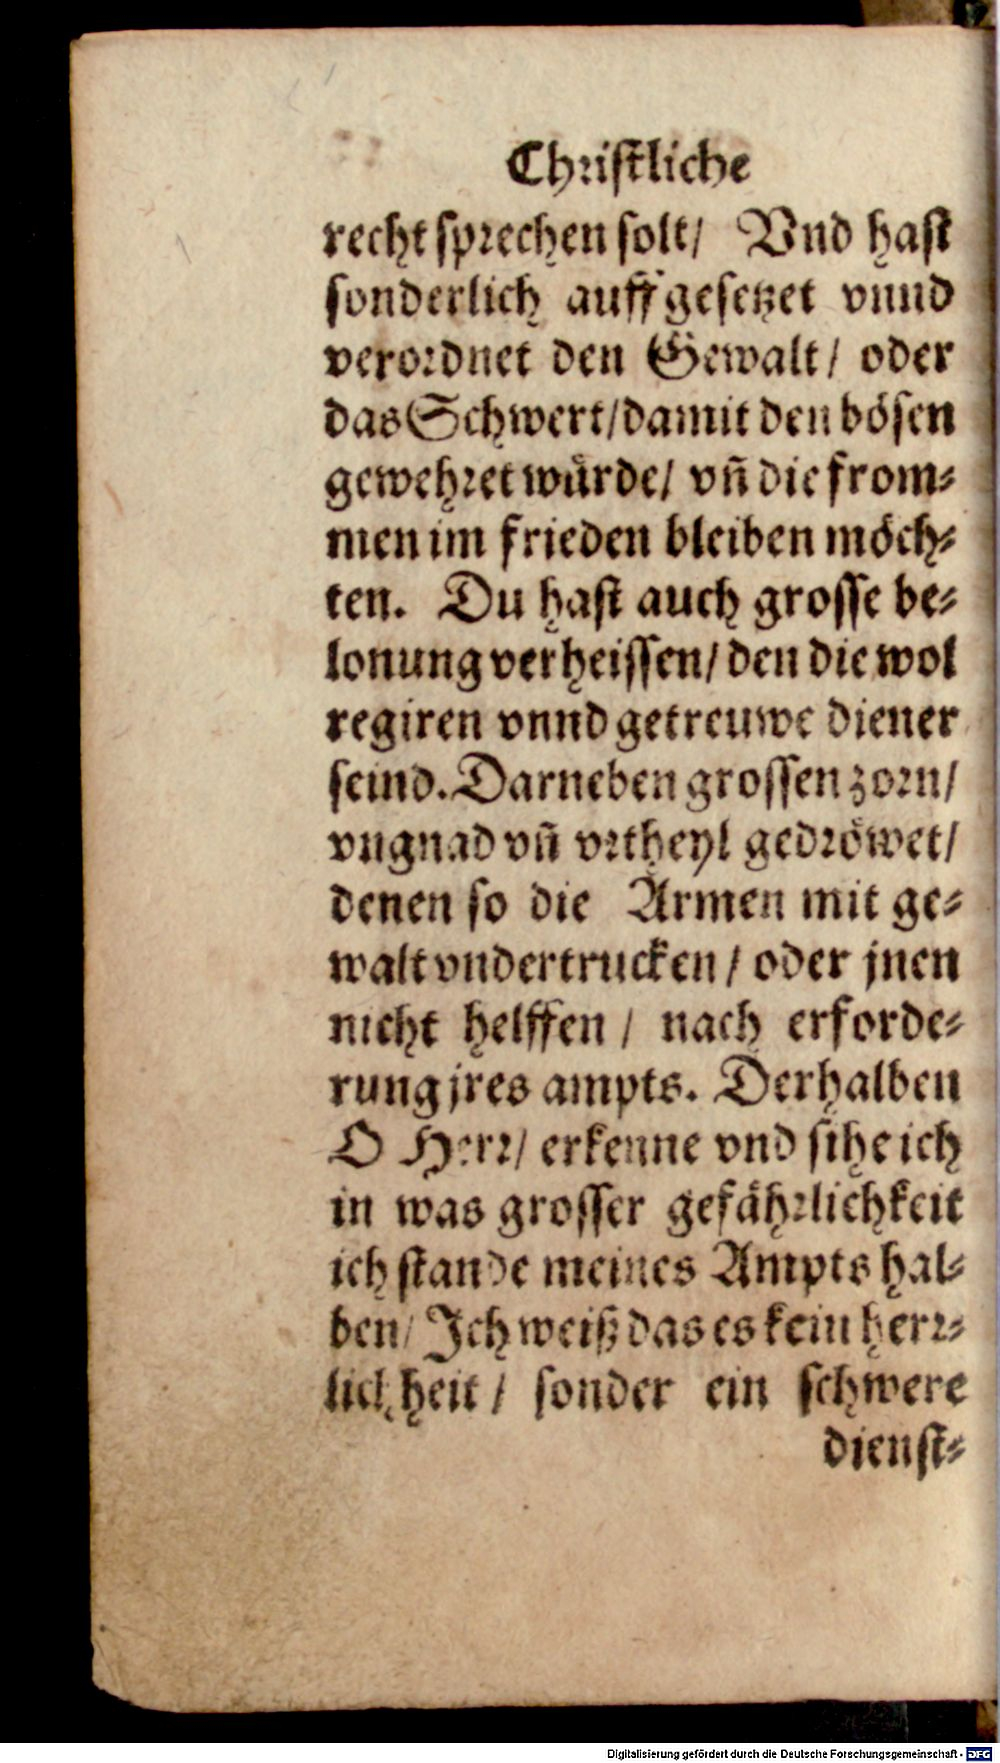 Christliche
recht sprechen solt/ Vnd hast
sonderlich auff gesetzet vnnd
verordnet den Gewalt/ oder
das Schwert/damit den bösen
gewehret würde/ vñ die from⸗
men im frieden bleiben möch⸗
ten. Du hast auch grosse be⸗
lonung verheissen/ den die wol
regiren vnnd getreuwe diener
seind. Darneben grossen zorn/
vngnad vñ vrtheyl gedröwet/
denen so die Armen mit ge⸗
walt vndertrucken/ oder jnen
nicht helffen/ nach erforde⸗
rung jres ampts. Derhalben
O Herr/ erkenne vnd sihe ich
in was grosser gefährlichkeit
ich stande meines Ampts hal⸗
ben/ Ich weiß das es kein herr⸗
lichheit/ sonder ein schwere
dienst⸗
Digitalisierung gefördert durch die Deutsche Forschungsgemeinschaft - DFG